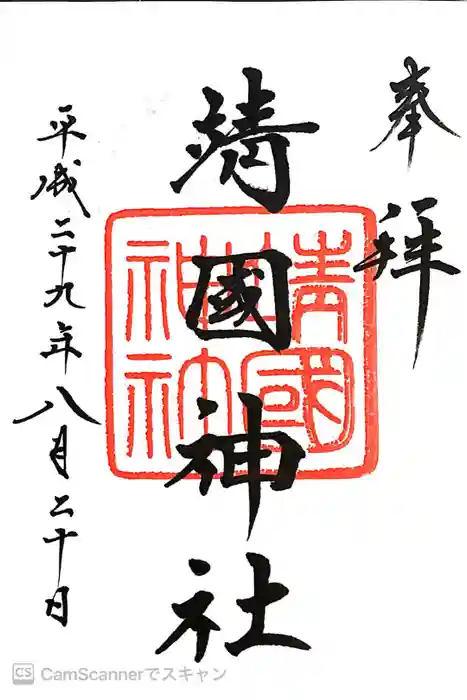 奉拝
靖國神社
靖國神社
平成二十九年八月二十日
CS CamScannerでスキャン